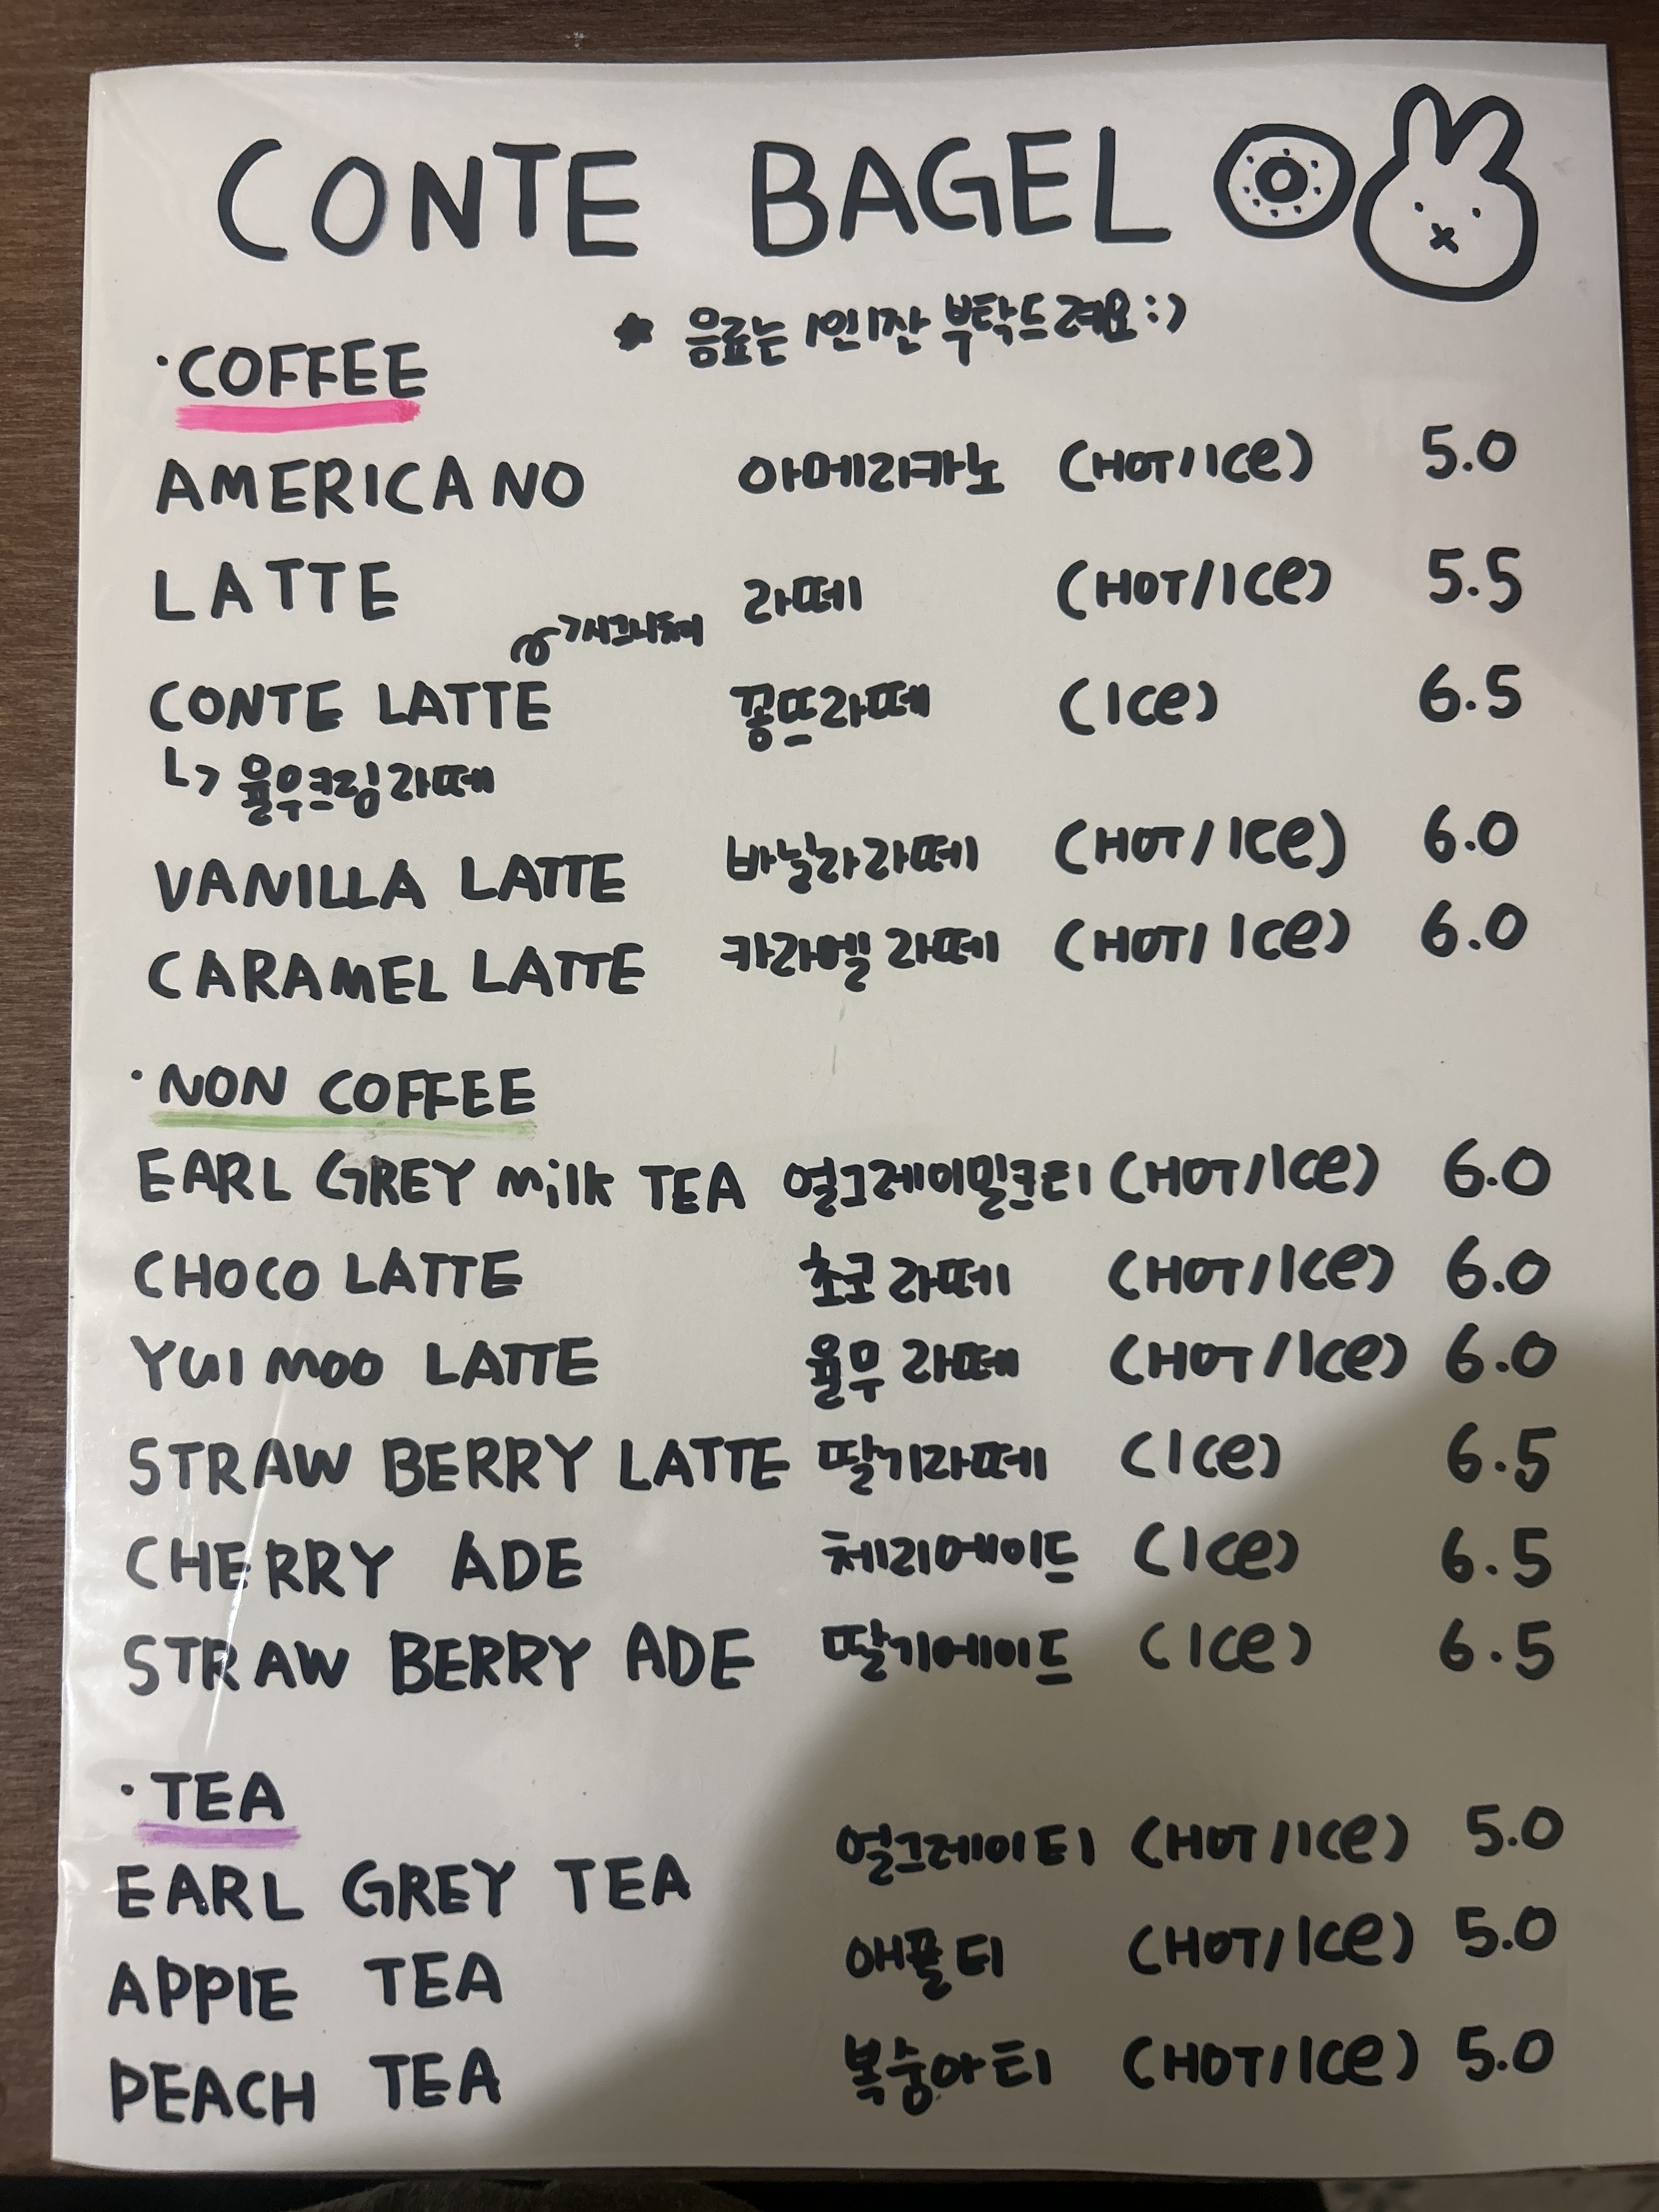 CONTE BAGEL
★ 음료는 1인1잔 부탁드려요:)
·COFFEE
AMERICANO 아메리카노 (HOT/ICe) 5.0
LATTE 라떼 (HOT/ICe) 5.5
시그니처
CONTE LATTE 꽁뜨라떼 (ICe) 6.5
↳ 율무크림라떼
VANILLA LATTE 바닐라라떼 (HOT/ICe) 6.0
CARAMEL LATTE 카라멜 라떼 (HOT/ICe) 6.0
·NON COFFEE
EARL GREY milk TEA 얼그레이밀크티 (HOT/ICe) 6.0
CHOCO LATTE 초코 라떼 (HOT/ICe) 6.0
YUl mOO LATTE 율무 라떼 (HOT/ICe) 6.0
STRAW BERRY LATTE 딸기라떼 (ICe) 6.5
CHERRY ADE 체리에이드 (ICe) 6.5
STRAW BERRY ADE 딸기에이드 (ICe) 6.5
·TEA
EARL GREY TEA 얼그레이티 (HOT/ICe) 5.0
APPlE TEA 애플티 (HOT/ICe) 5.0
PEACH TEA 복숭아티 (HOT/ICe) 5.0